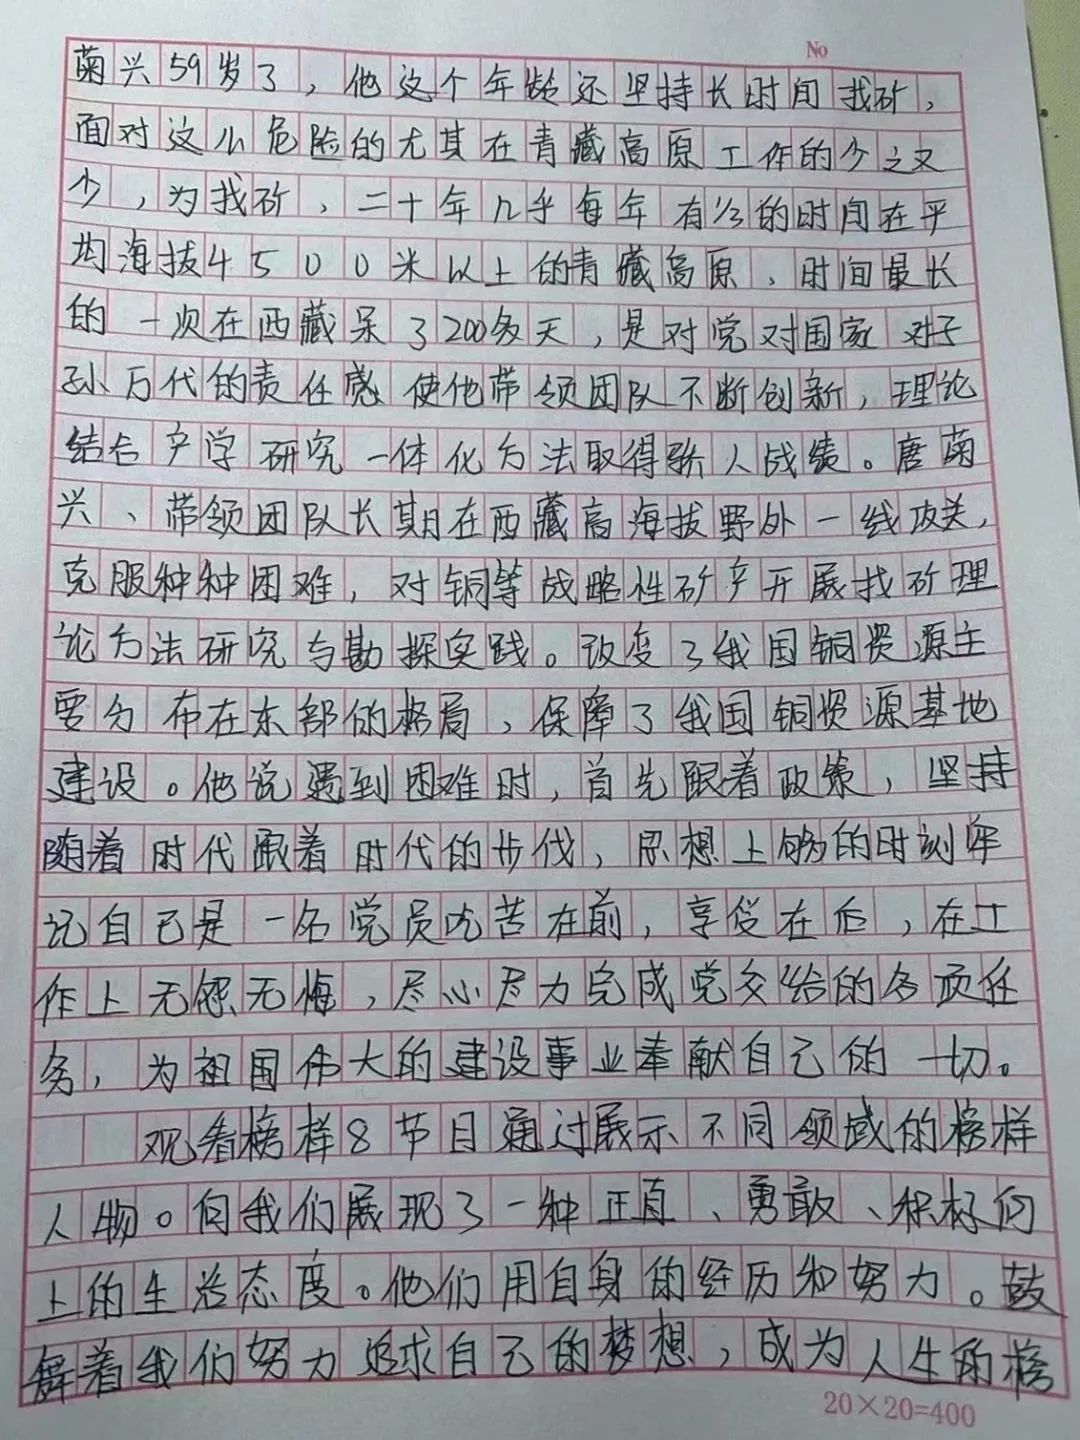 No
菊兴59岁了，他这个年龄还坚持长时间找矿，
面对这么危险的尤其在青藏高原工作的少之又
少，为找矿，二十年几乎每年有1/3的时间在平
均海拔4500米以上的青藏高原，时间最长
的一次在西藏呆了200多天，是对党对国家对子
孙万代的责任感使他带领团队不断创新，理论
结合产学研究一体化方法取得骄人战绩。唐菊
兴、带领团队长期在西藏高海拔野外一线攻关，
克服种种困难，对铜等战略性矿产开展找矿理
论方法研究与勘探实践。改变了我国铜资源主
要分布在东部的格局，保障了我国铜资源基地
建设。他说遇到困难时，首先跟着政策，坚持
随着时代跟着时代的步伐，思想上够的时刻牢
记自己是一名党员吃苦在前，享受在后，在工
作上无怨无悔，尽心尽力完成党交给的各项任
务，为祖国伟大的建设事业奉献自己的一切。
观看榜样8节目通过展示不同领域的榜样
人物。向我们展现了一种正直、勇敢、积极向
上的生活态度。他们用自身的经历和努力。鼓
舞着我们努力追求自己的梦想，成为人生的榜
20×20=400